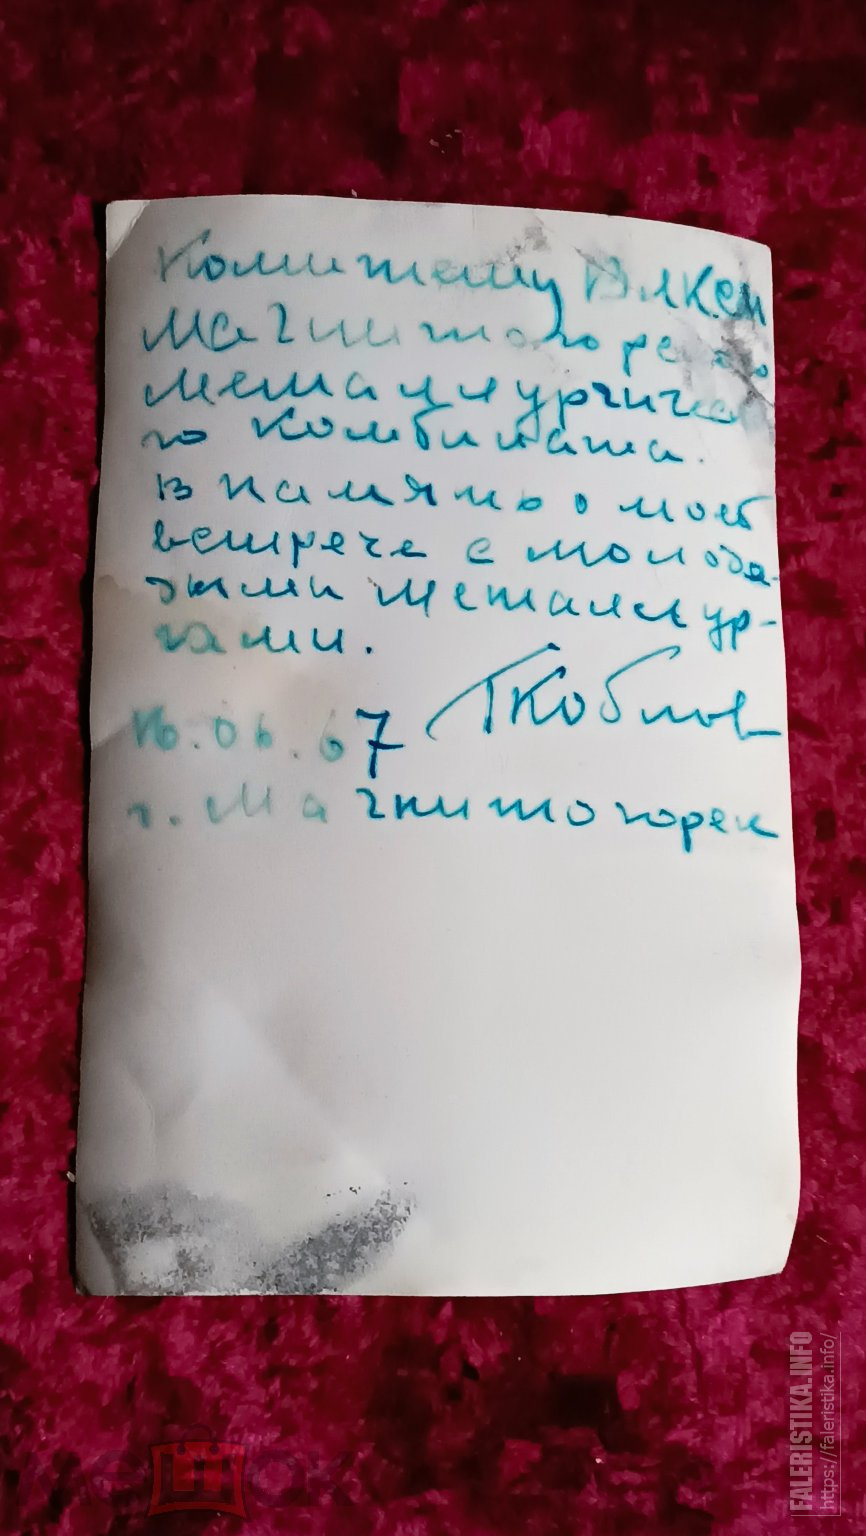 Комитету ВЛКСМ
Магнитогорского
металлургическо-
го комбината.
В память о моей
встрече с молоды-
ми металлур-
гами.
16.06.67 Коблов
г. Магнитогорск
FALERISTIKA.INFO
https://faleristika.info/
мешок